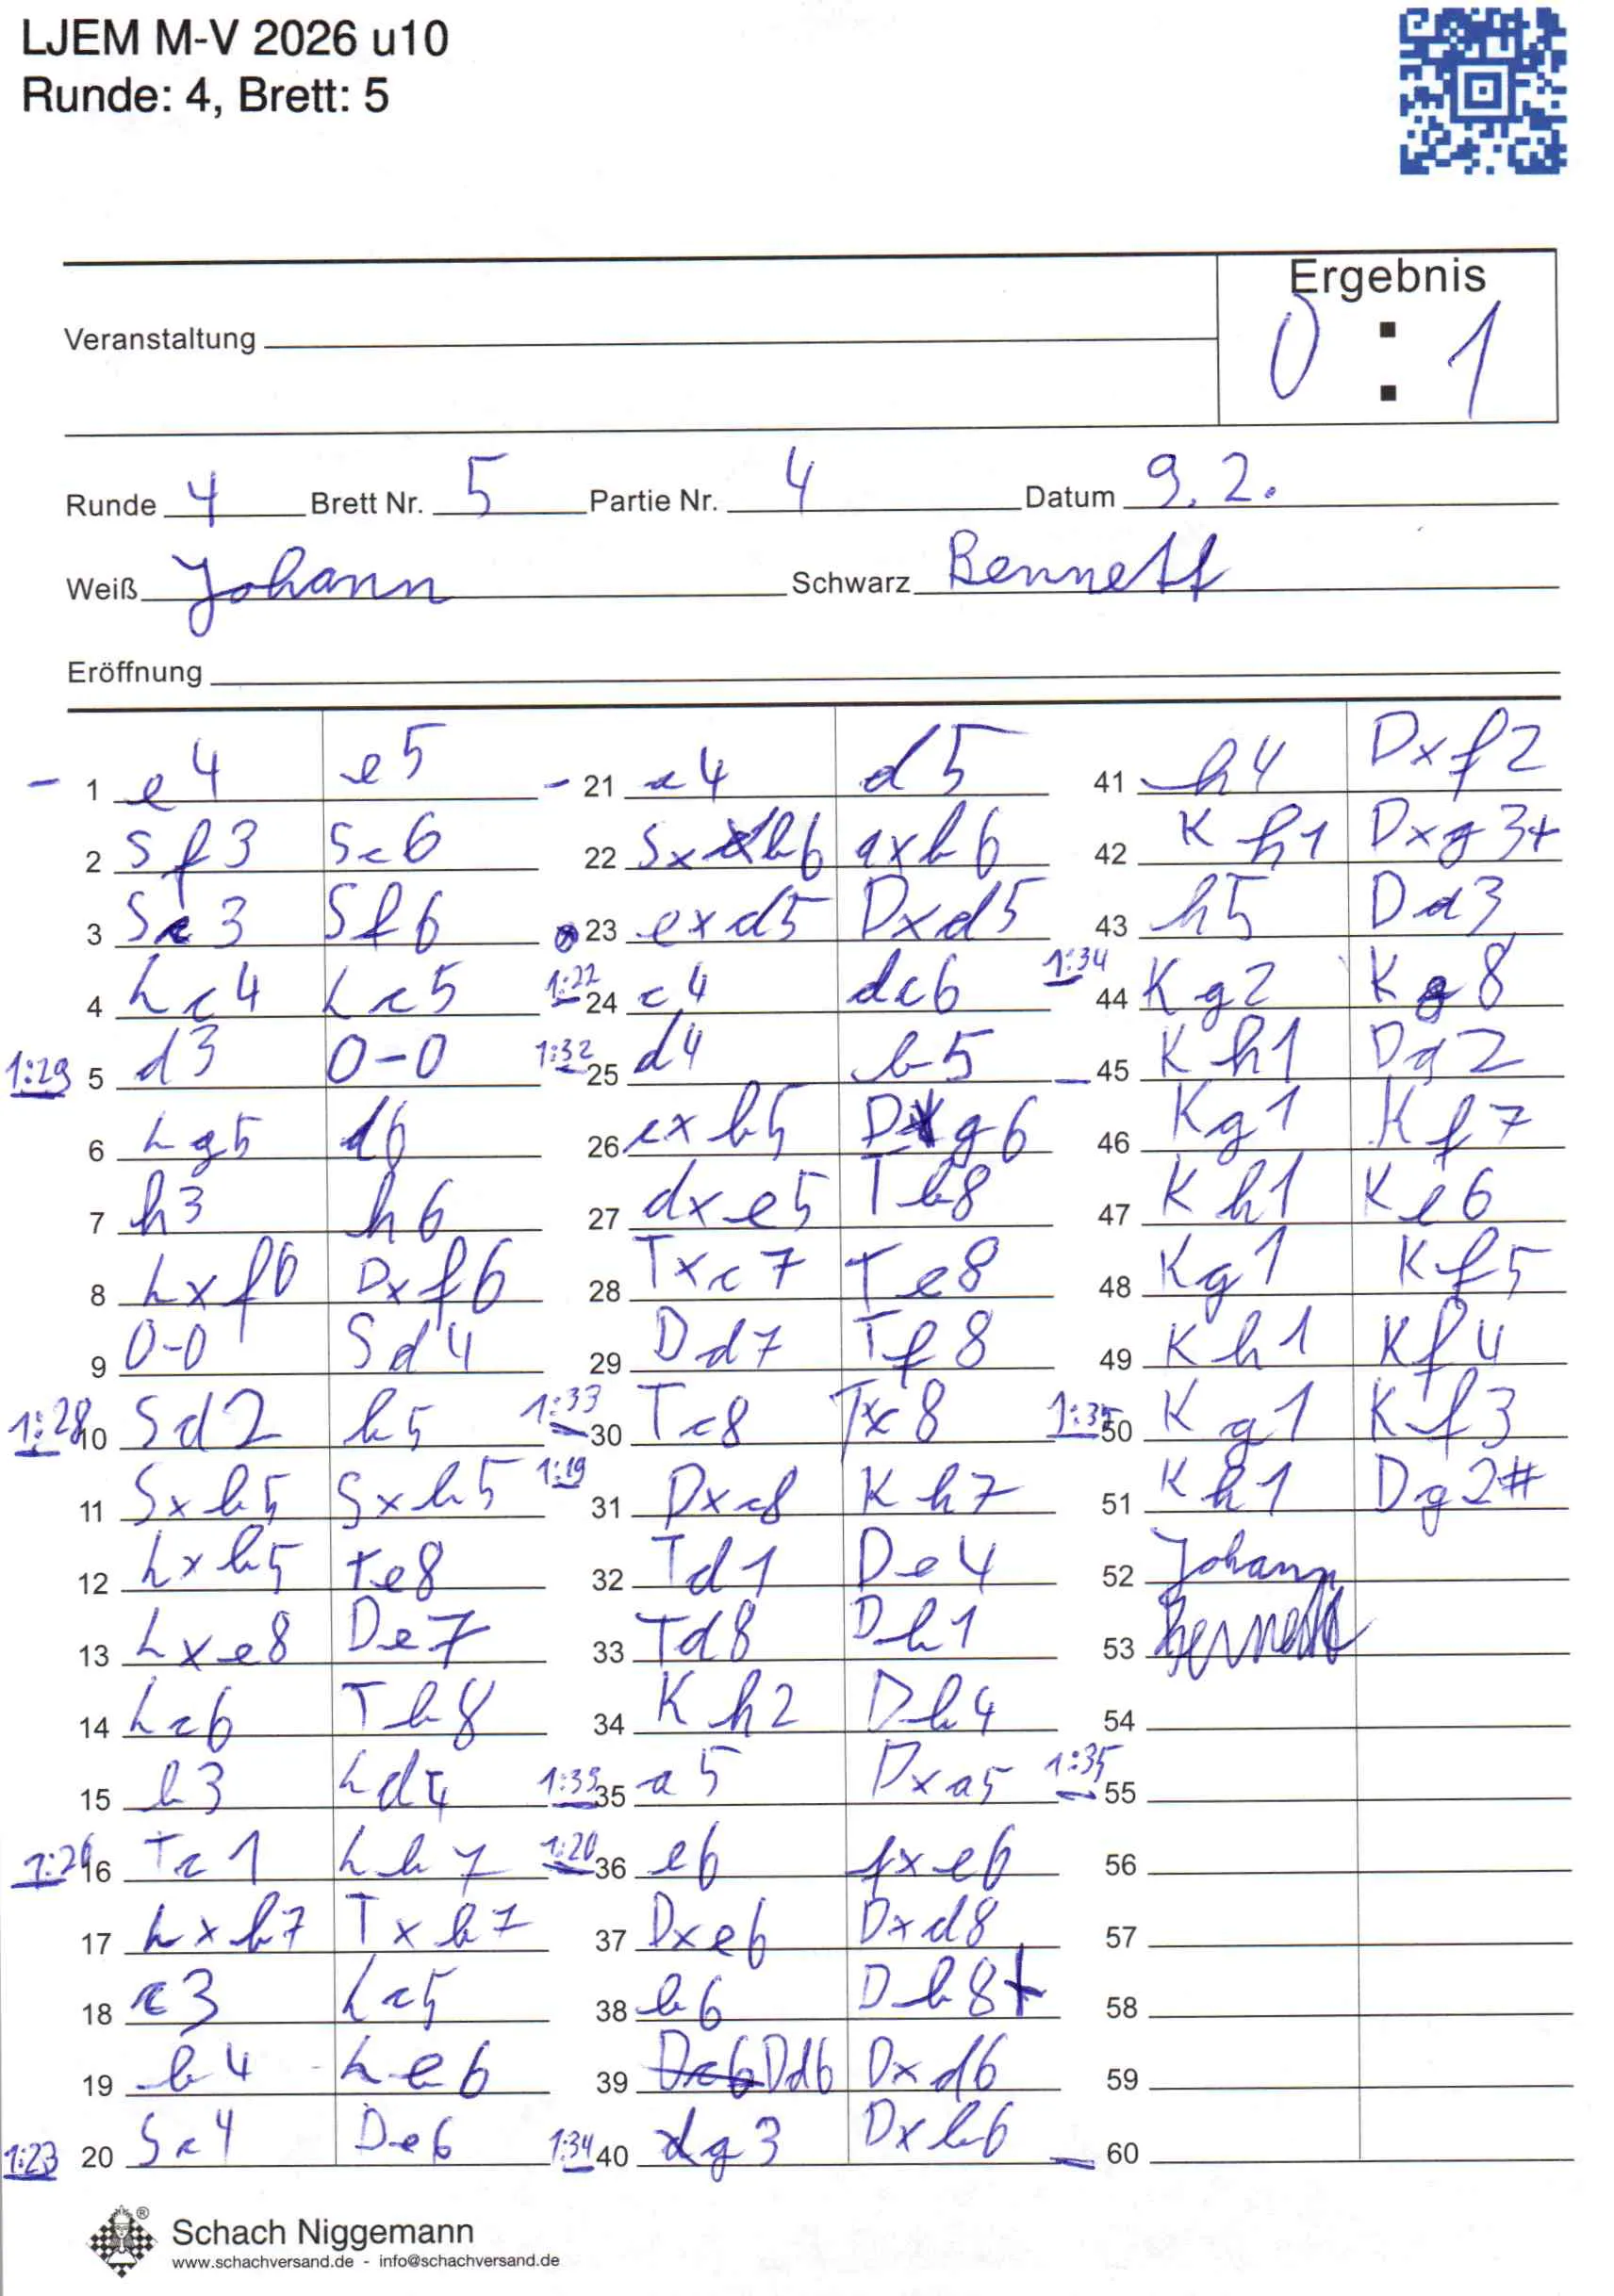 LJEM M-V 2026 u10
Runde: 4, Brett: 5
Ergebnis
Veranstaltung
0 : 1
Runde 4 Brett Nr. 5 Partie Nr. 4 Datum 9.2.
Weiß Johann Schwarz Bennett
Eröffnung
1 e4 e5
2 Sf3 Sc6
3 Sc3 Sf6
4 Lc4 Lc5
1:29 5 d3 0-0
6 Lg5 d6
7 h3 h6
8 Lxf6 Dxf6
9 0-0 Sd4
1:28 10 Sd2 b5
11 Sxb5 Sxb5
12 Lxb5 te8
13 Lxe8 De7
14 Lc6 Tb8
15 b3 Ld4
1:26 16 Tc1 Lb7
17 Lxb7 Txb7
18 c3 Lc5
19 b4 Le6
1:23 20 Sc4 De6
21 a4 d5
22 Sxb6 axb6
23 exd5 Dxd5
1:22 24 c4 dc6
1:32 25 d4 b5
26 cxb5 Dg6
27 dxe5 Tb8
28 Txc7 Te8
29 Dd7 Tf8
1:33 30 Tc8 Txc8
1:19 31 Dxc8 Kh7
32 Td1 De4
33 Td8 Db1
34 Kh2 Db4
1:33 35 a5 Dxa5
1:20 36 e6 fxe6
37 Dxe6 Dxd8
38 b6 Db8+
39 Dc6 Dd6 Dxd6
1:34 40 g3 Dxb6
41 h4 Dxf2
42 Kh1 Dxg3+
43 h5 Dd3
1:34 44 Kg2 Kg8
45 Kh1 Dg2
46 Kg1 Kf7
47 Kh1 Ke6
48 Kg1 Kf5
49 Kh1 Kf4
1:35 50 Kg1 Kf3
51 Kh1 Dg2#
52 Johann
53 Bennett
54
1:35 55
56
57
58
59
60
Schach Niggemann
www.schachversand.de - info@schachversand.de